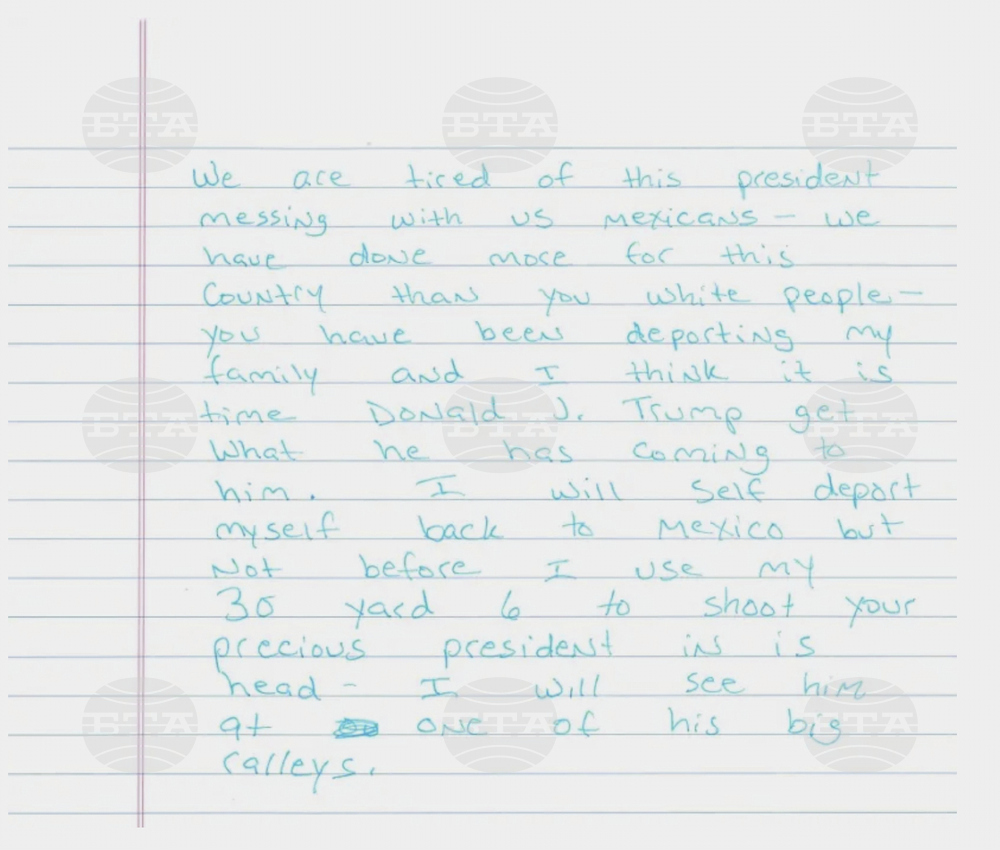 БТА БТА БТА
We are tired of this president
messing with us mexicans - we
have done more for this
Country than you white people -
you have been deporting my
family and I think it is
time Donald J. Trump get
БТА БТА БТА
What he has coming to
him. I will self deport
myself back to Mexico but
Not before I use my
30 yard 6 to shoot your
precious president in is
head - I will see him
at one of his big
БТА БТА БТА
ralleys.